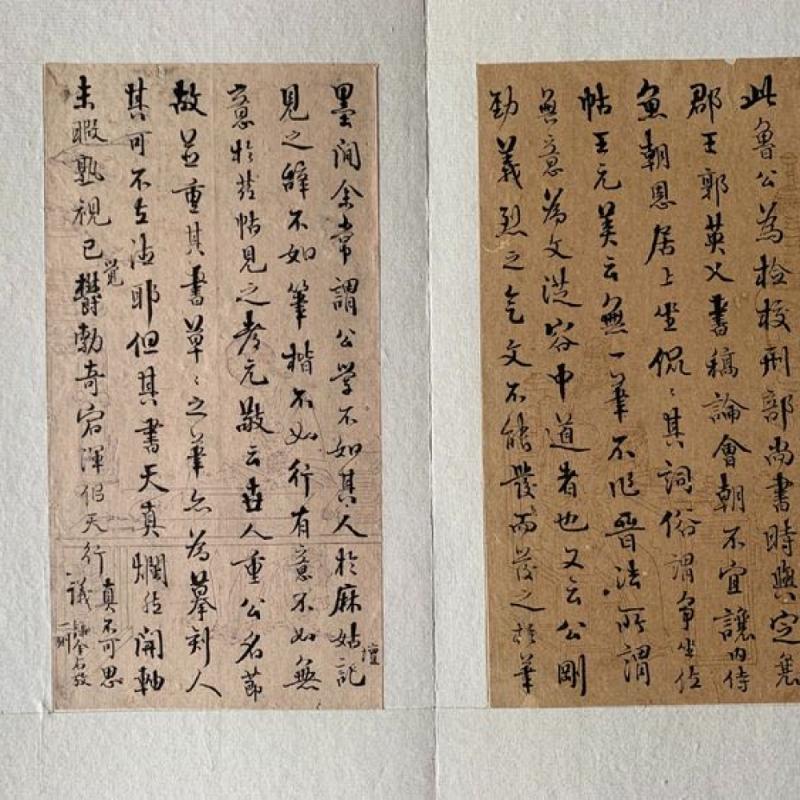 此魯公為檢校刑部尚書時與定襄
郡王郭英乂書稿論會朝不宜讓內侍
魚朝恩居上坐侃〻其詞俗謂爭坐位
帖王元美云無一筆不作晉法所謂
無意為文從容中道者也又云公剛
勁義烈之氣文不能發而發之於筆
墨間余常謂公學不如其人於麻姑壇記
見之辭不如筆楷不如行有意不如無
意於茲帖見之考元敬云世人重公名節
故並重其書草〻之筆亦為摹刻人
其可不立德耶但其書天真爛然開軸
未暇熟視已覺鬱勃奇宕渾侶天行
真不可思
議